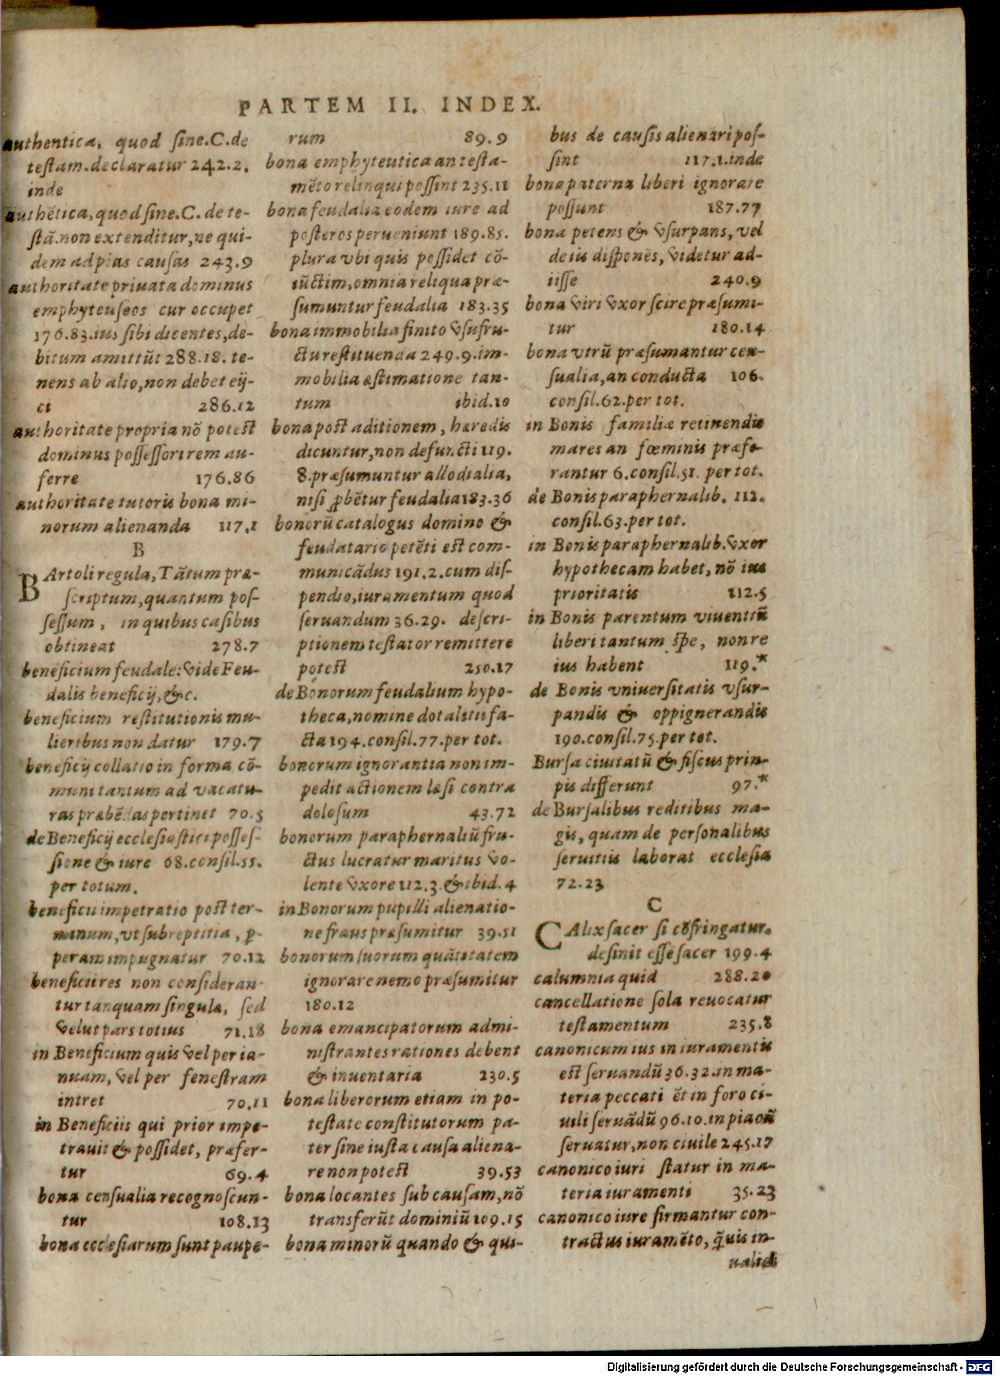 PARTEM II. INDEX.
authentica, quod sine. C. de
testam. declaratur 242.2.
inde
authẽtica, quod sine. C. de te-
stã. non extenditur, ne qui-
dem ad pias causas 243.9
authoritate priuata dominus
emphyteuseos cur occupet
176.83. ius sibi dicentes, de-
bitum amittũt 288.18. te-
nens ab alio, non debet eij-
ci 286.12
authoritate propria nõ potest
dominus possessori rem au-
ferre 176.86
authoritate tutoris bona mi-
norum alienanda 117.1
B
BArtoli regula, Tãtum præ-
scriptum, quantum pos-
sessum, in quibus casibus
obtineat 278.7
beneficium feudale: vide Feu-
dalis beneficij, &c.
beneficium restitutionis mu-
lieribus non datur 179.7
beneficij collatio in forma cõ-
muni tantum ad vacatu-
ras præbẽdas pertinet 70.5
de Beneficij ecclesiastici posses-
sione & iure 68. consil. 55.
per totum.
beneficii impetratio post ter-
minum, vt subreptitia, p-
peram impugnatur 70.12
beneficii res non consideran-
tur tanquam singula, sed
velut pars totius 71.18
in Beneficium quis vel per ia-
nuam, vel per fenestram
intret 70.11
in Beneficiis qui prior impe-
trauit & possidet, præfer-
tur 69.4
bona censualia recognoscun-
tur 108.13
bona ecclesiarum sunt paupe-
rum 89.9
bona emphyteutica an testa-
mẽto relinqui possint 235.11
bona feudalia eodem iure ad
posteros perueniunt 189.85.
plura vbi quis possidet cõ-
iũctim, omnia reliqua præ-
sumuntur feudalia 183.35
bona immobilia finito vsufru-
ctu restituenda 249.9. im-
mobilia æstimatione tan-
tum ibid. 10
bona post aditionem, hæredis
dicuntur, non defuncti 119.
8. præsumuntur allodialia,
nisi ꝓbẽtur feudalia 183.36
bonorũ catalogus domino &
feudatario petẽti est com-
municãdus 191.2. cum dis-
pendio, iuramentum quod
seruandum 36.29. descri-
ptionem testator remittere
potest 250.17
de Bonorum feudalium hypo-
theca, nomine dotalitii fa-
cta 194. consil. 77. per tot.
bonorum ignorantia non im-
pedit actionem læsi contra
dolosum 43.72
bonorum paraphernaliũ fru-
ctus lucratur maritus vo-
lente vxore 112.3. & ibid. 4
in Bonorum pupilli alienatio-
ne fraus præsumitur 39.51
bonorum suorum quãtitatem
ignorare nemo præsumitur
180.12
bona emancipatorum admi-
nistrantes rationes debent
& inuentaria 230.5
bona liberorum etiam in po-
testate constitutorum pa-
ter sine iusta causa aliena-
re non potest 39.53
bona locantes sub causam, nõ
transferũt dominiũ 109.15
bona minorũ quando & qui-
bus de causis alienari pos-
sint 117.1. inde
bona paterna liberi ignorare
possunt 187.77
bona petens & vsurpans, vel
de iis dispõnẽs, videtur ad-
iisse 240.9
bona viri vxor scire præsumi-
tur 180.14
bona vtrũ præsumantur cen-
sualia, an conducta 106.
consil. 62. per tot.
in Bonis familiæ retinendis
mares an fœminis præfe-
rantur 6. consil. 51. per tot.
de Bonis paraphernalib. 112.
consil. 63. per tot.
in Bonis paraphernalib. vxor
hypothecam habet, nõ ius
prioritatis 112.5
in Bonis parentum viuentiũ
liberi tantum spe, non re
ius habent 119.*
de Bonis vniuersitatis vsur-
pandis & oppignerandis
190. consil. 75. per tot.
Bursa ciuitatũ & fiscus prin-
pis differunt 97.*
de Bursalibus reditibus ma-
gis, quam de personalibus
seruitiis laborat ecclesia
72.23
C
CAlix sacer si cõfringatur,
desinit esse sacer 199.4
calumnia quid 288.20
cancellatione sola reuocatur
testamentum 235.8
canonicum ius in iuramentis
est seruandũ 36.32. in ma-
teria peccati ẽt in foro ci-
uili seruãdũ 96.10. in pia cã
seruatur, non ciuile 245.17
canonico iuri statur in ma-
teria iuramenti 35.23
canonico iure firmantur con-
tractus iuramẽto, q̃uis in-
ualid
Digitalisierung gefördert durch die Deutsche Forschungsgemeinschaft - DFG